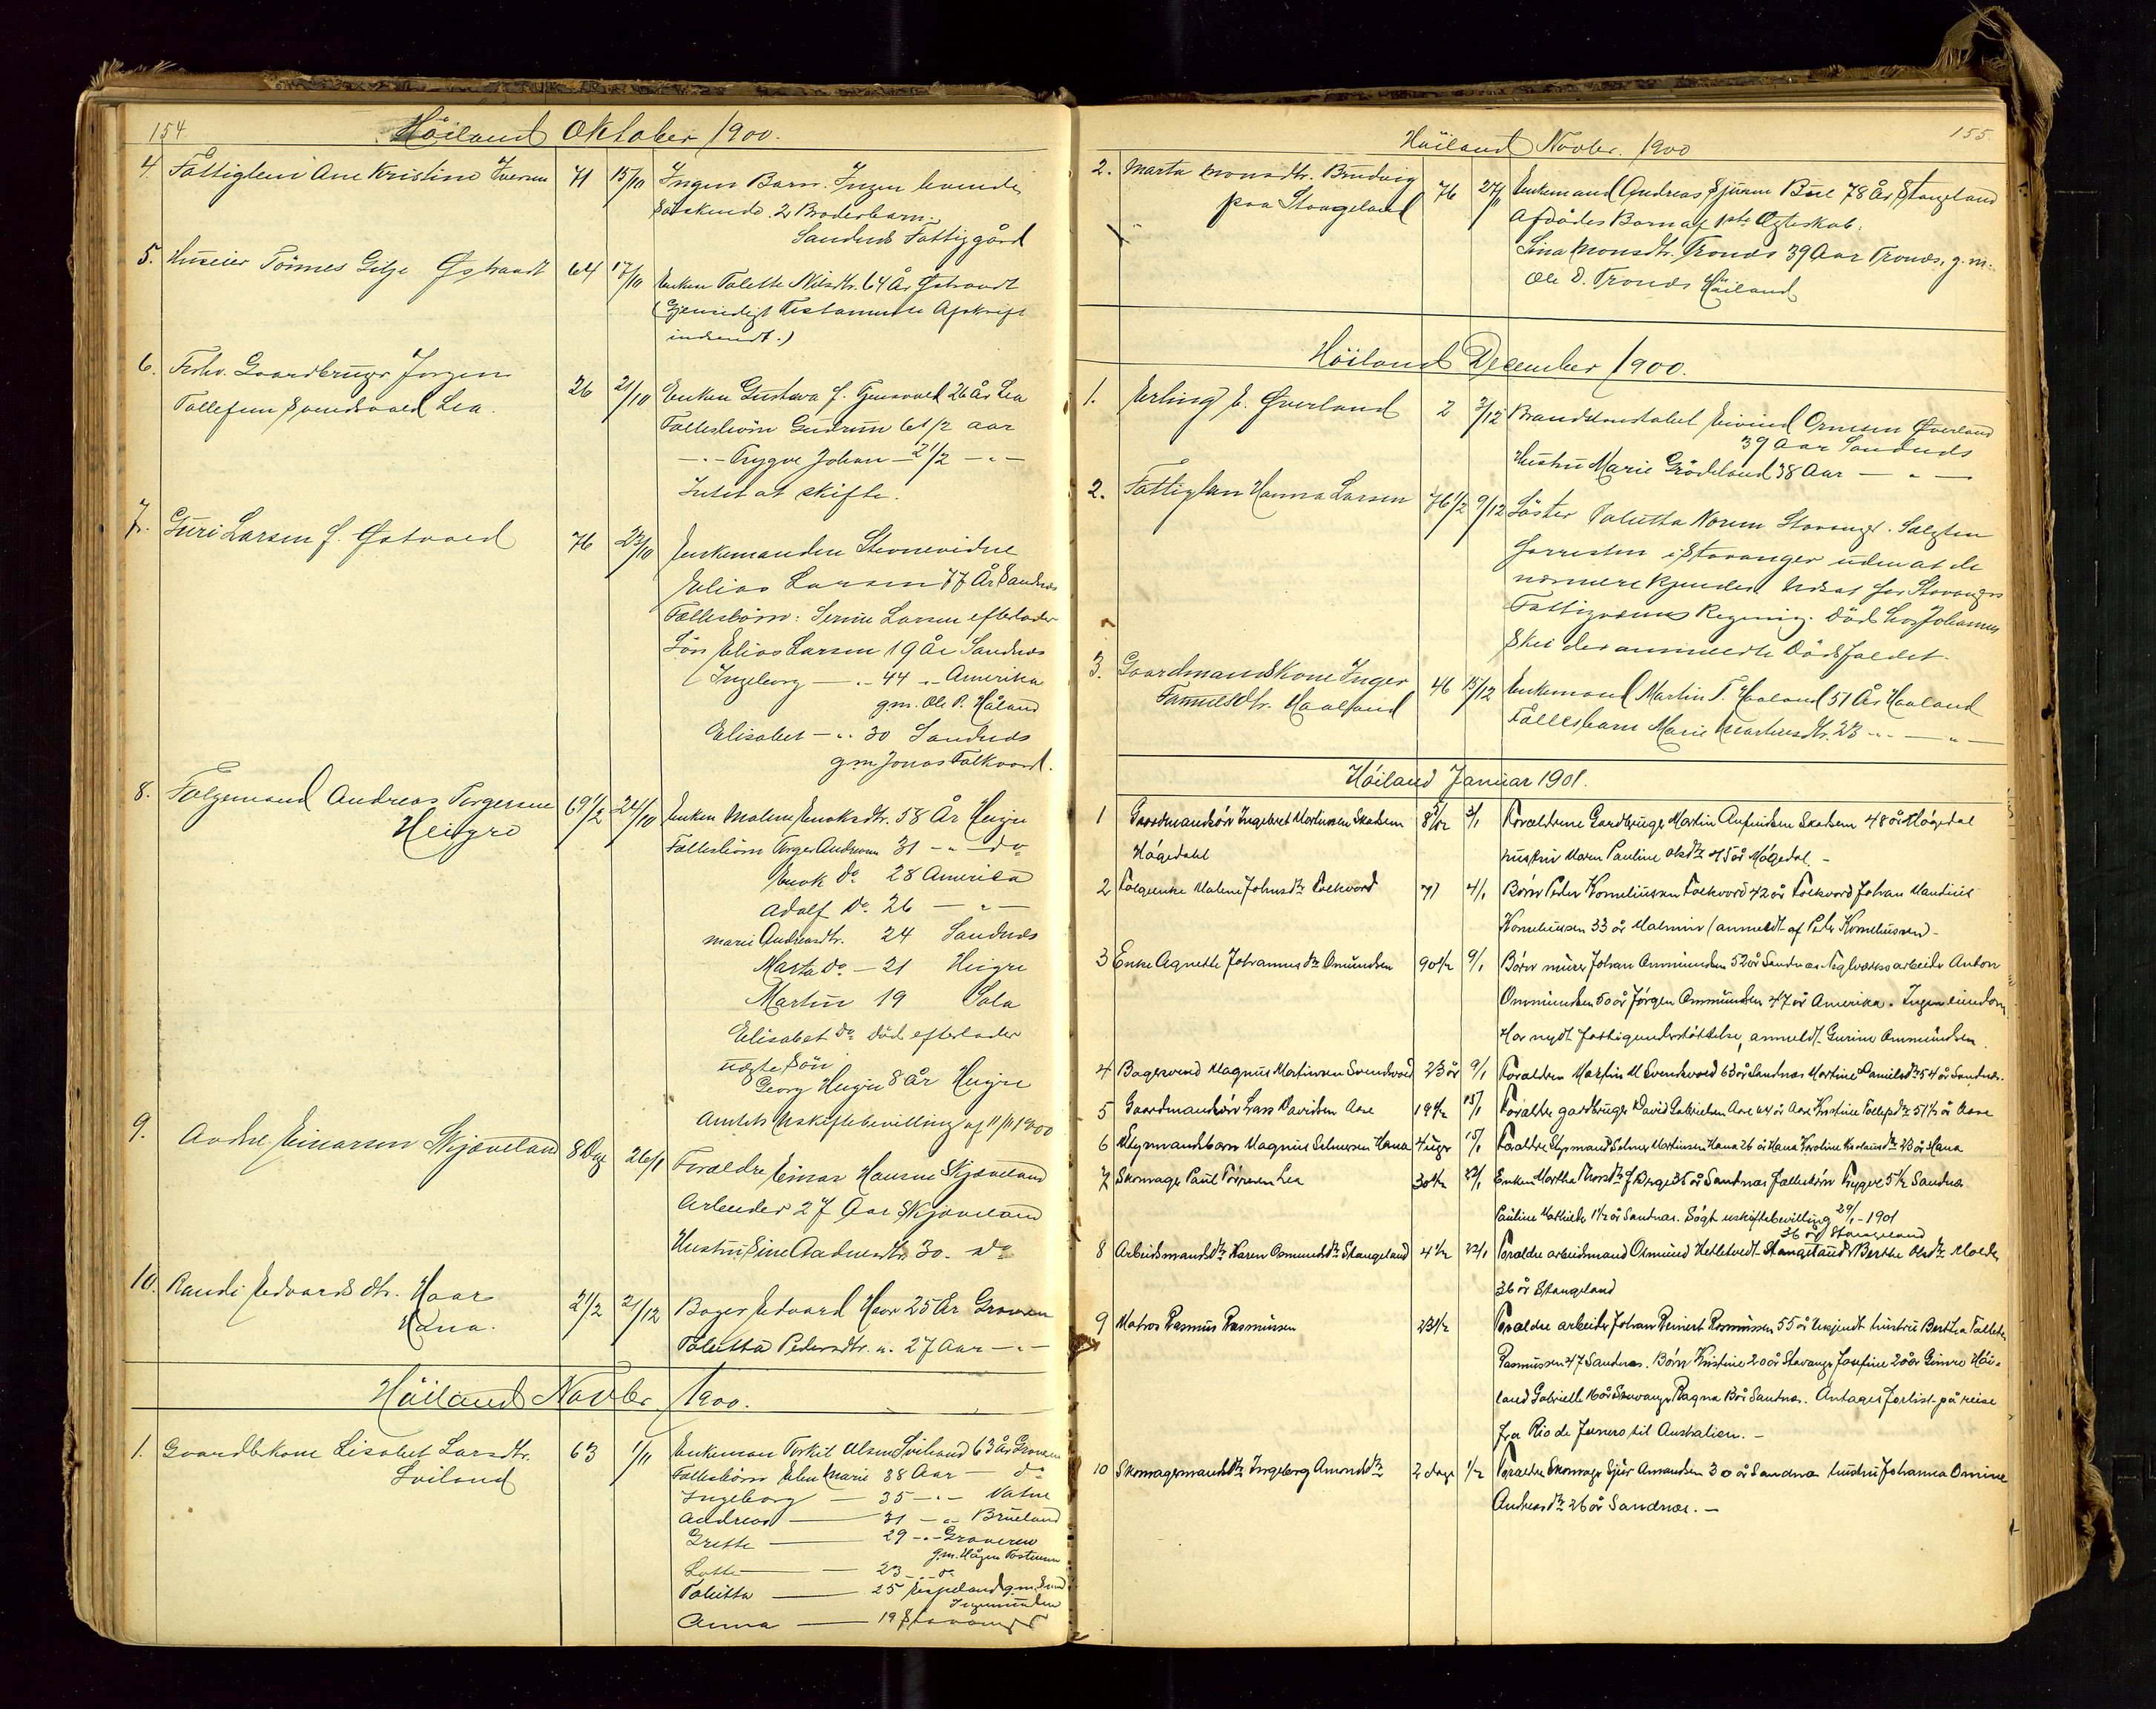 154
Höiland Oktober 1900.
4. Fattiglem Ane Kristine Iversen 71 15/10 Ingen Barn. Ingen levende
Söskende. 2 Broderbarn.
Sandnæs Fattiggård
5. Huseier Tönnes Gilje Østraadt 64 17/10 Enken Talette Nilsdtr. 64 År Østraadt
(Gjensidigt Testamente Afskrift
indsendt.)
6. Forhv. Gaardbruger Jörgen
Tollefsen Svendsvoel Lea. 26 21/10 Enken Gustava f. 26 År Lea
Fællesbörn Gudrun 6 1/2 aar
-"- Trygve Johan - 2 1/2 -"-
Intet at skifte.
7. Guri Larsen f. Østvold 76 23/10 Enkemanden Stevnevidne
Elias Larsen 77 År Sandnæs
Fællesbörn: Serine Larsen efterlader
Sön Elias Larsen 19 År Sandnæs
Ingeborg -"- 44 -"- Amerika
g.m. Ole P. Håland
Elisabet -"- 30 Sandnæs
g.m. Jonas Folkvord.
8. Folgemand Andreas Torgersen
Heigre 69 1/2 24/10 Enken Malene Enoksdtr. 58 År Heigre
Fællesbörn Torger Andreasen 31 -"- do
Enok do 28 America
Adolf do. 26 -"-
Marie Andreasdtr. 24 Sandnæs
Marta do - 21 Heigre
Martin 19 Sola
Elisabet do död efterlader
uægte Sön
Georg Heigre 8 år Heigre
Amtets Uskiftebevilling af 11/11 1900
9. Andre. Einarsen Skjæveland 8 Dag 26/ Forældre Einar Hansen Skjæveland
Arbeider 27 Aar Skjæveland
Hustru Sine Aadnesdtr. 30. do
10. Randi Edvardsdtr. Haar
Hana. 2 1/2 21/12 Bager Edvard Haar 25 År Graveren
Talitta Pedersdtr. 27 Aar -"-
Höiland Novbr. 1900.
1. Gaardbkone Lisabet Larsdtr.
Sviland 63 1/11 Enkeman Torkil Olsen Sviland 63 År Graveren
Fællesbörn Elen Marie 38 Aar - do
Ingeborg - 35 -"- Vatne
Andreas - 31 -"- Brueland
Grette - 29 -"- Graveren
g.m. Håges Tostensen
Lotte - 23 -"- do
Talitta - 25 Espeland g.m.
Anna - 19 Stavanger
155
Höiland Novbr. 1900
2. Marta Monsdtr. Brudvig
paa Stangeland 76 27/11 Enkemand Andreas Sjursen Bue 78 År Stangeland
Afdödes Barn af 1ste Ægteskab:
Sina Monsdtr. Tronds 39 Aar Tronds, g.m.
Ole D. Tronds Höiland
Höiland December 1900.
1. Erling E. Øverland 2 3/12 Brandkonstabel Eivind Ornesen Øverland
39 Aar Sandnæs
Hustru Marie Grödeland 38 Aar -"-
2. Fattiglem Hanna Larsen 76 1/2 9/12 Söster Talitta Norem Stavanger. Salgten
forresten i Stavanger uden at de
nærmere kjendes. Udsat for Stavangers
Fattigvæsens Regning. Död hos Johannes
Skei der anmeldte Dödsfaldet.
3. Gaardmandskone Inger
Samuelsdtr. Haaland 46 15/12 Enkemand Martin T. Haaland 51 År Haaland
Fællesbarn Marie Martinsdtr. 23 -"-
Höiland Januar 1901.
1 Gaardmandsön Ingebret Martinsen Skadsem 8 5/12 3/1 Forældrene Gardbruger Martin Aufindsen Skadsem 48 år Högedal
Högedahl hustru Maren Pauline olsdtr 45 år Högedal. -
2 Folgeenke Malene Johnsdtr Folkvord 71 4/1 Börn Peder Korneliussen Folkvord 42 år Folkvord Johan Mandius
Korneliussen 33 år Malmin (anmeldt af Peder Korneliussen) -
3 Enke Agnethe Johannesdtr Omundsen 90 1/2 9/1 Börn murer Johan Ommundsen 52 år Sandnæs. Teglverksarbeider Anton
Ommundsen 50 år Jörgen Ommundsen 47 år Amerika. Ingen eiendom
Har nydt fattigunderstöttelse, anmeldt Gurine Ommundsen.
4 Bagersvend Magnus Martinsen Svendsvoel 23 år 9/1 Foraldren Martin M Svendsvoel 63 år Sandnæs Martine Danielsdtr 54 år Sandnæs.
5 Gaardmandsön Lars Davidsen Aase 19 1/2 15/1 Foraldre gardbruger David Gabrielsen Aase 64 år Aase Kristine Tollefsdtr 51 1/2 år Aase
6 Styrmandsbarn Magnus Selmersen Hana 4 uger 15/1 Foraldre Styrmand Selmer Martinsen Hana 26 år Hana Karoline Karlsdtr 23 år Hana
7 Skomager Paul Törresen Lea 30 1/2 22/1 Enken Martha Thorsdtr f Berge 35 år Sandnæs Fællesbörn Trygve 5 1/2 Sandnæs
Pauline Mathilde 1 1/2 år Sandnæs. Sögt uskiftebevilling 29/1 - 1901
36 år Stangeland
8 Arbeidsmandsdtr Karen Osmundsdtr Stangeland 4 1/2 22/1 Foraldre arbeidsmand Osmund Hetletvedt Stangeland Berthe Olsdtr Molde
36 år Stangeland
9 Matros Rasmus Rasmussen 23 1/2 Foraldre arbeider Johan Reinert Rasmussen 55 år Ukjendt hustru Bertha
Rasmussen 47 Sandnæs. Börn Kristine 20 år Stavanger Josefine 20 år Gimre Höi-
land Gabrielle 16 år Stavanger Ragna 13 år Sandnæs. Antages forlist på reise
fra Rio de Janero til Australien. -
10 Skomagermandsdtr Ingeborg Amondsdtr 2 dage 1/2 Foraldre Skomager Sjur Amandsen 30 år Sandnæs hustru Johanna Omine
Andreasdtr 26 år Sandnæs. -